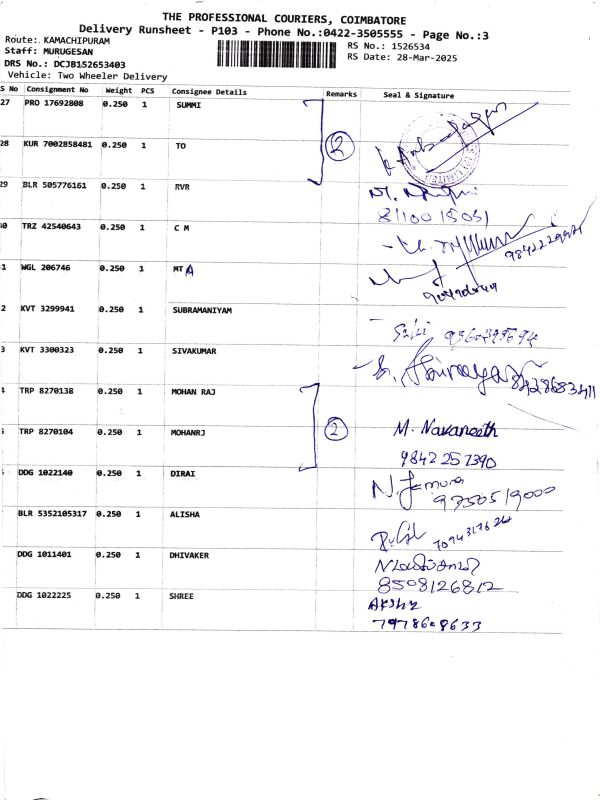 THE PROFESSIONAL COURIERS, COIMBATORE
Delivery Runsheet - P103 - Phone No.:0422-3505555 - Page No.:3
Route: KAMACHIPURAM
RS No.: 1526534
Staff: MURUGESAN
RS Date: 28-Mar-2025
DRS No.: DCJB152653403
Vehicle: Two Wheeler Delivery
S No Consignment No Weight PCS Consignee Details Remarks Seal & Signature
27 PRO 17692808 0.250 1 SUMMI
28 KUR 7002858481 0.250 1 TO 2
29 BLR 505776161 0.250 1 RVR
8110015051
40 TRZ 42540643 0.250 1 C M
9842229921
1 WGL 206746 0.250 1 MTA
2 KVT 3299941 0.250 1 SUBRAMANIYAM
3 KVT 3300323 0.250 1 SIVAKUMAR
8428683411
4 TRP 8270138 0.250 1 MOHAN RAJ
5 TRP 8270104 0.250 1 MOHANRJ 2 M. Navaneeth
9842257390
DDG 1022140 0.250 1 DIRAI
9750519000
BLR 5352105317 0.250 1 ALISHA
7094317624
DDG 1011401 0.250 1 DHIVAKER
8508126812
DDG 1022225 0.250 1 SHREE AKshy
7978608633